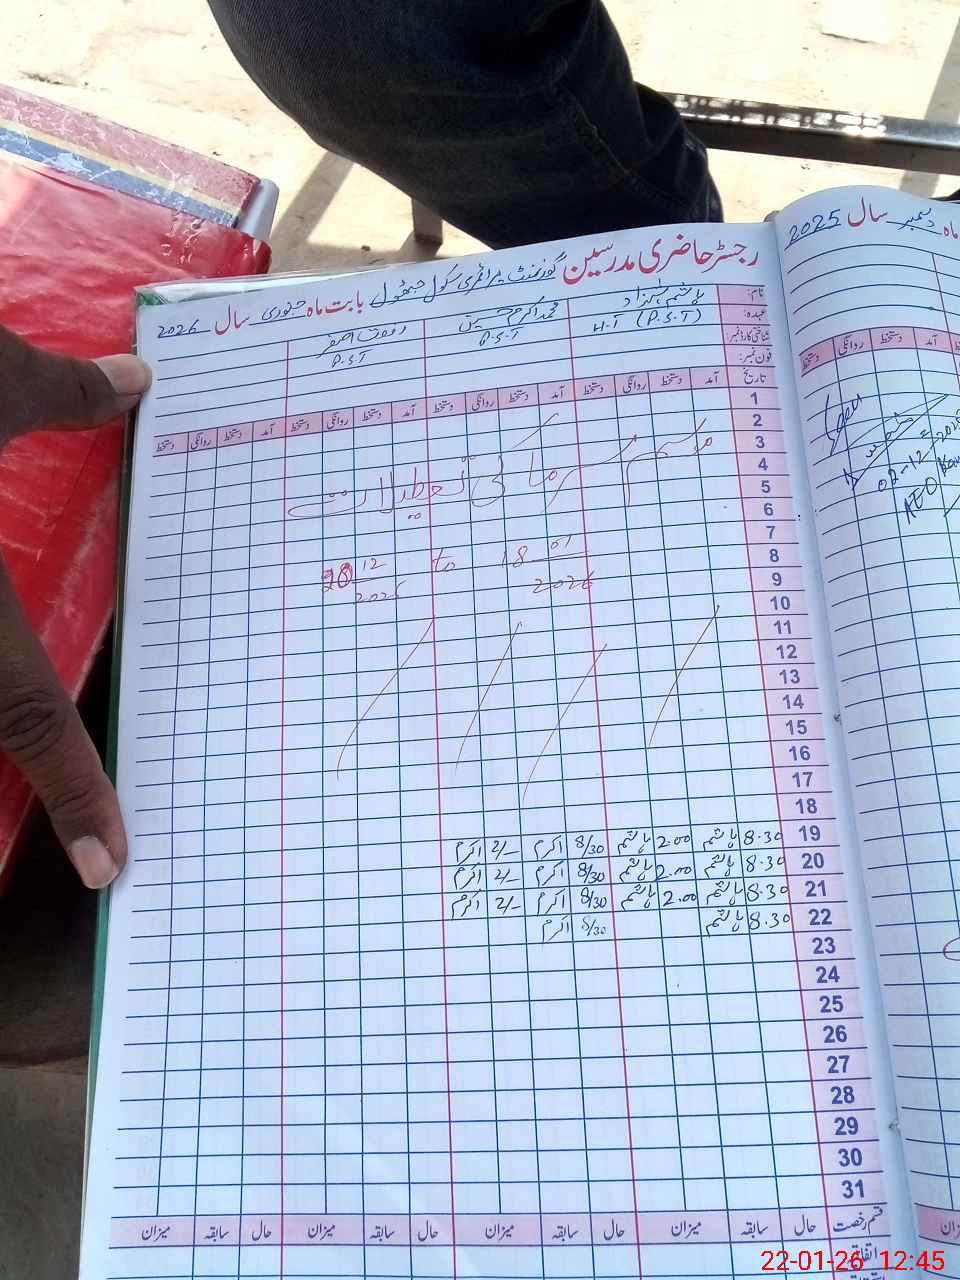 رجسٹر حاضری مدرسین گورنمنٹ پرائمری سکول جھول بابت ماہ جنوری سال 2026
نام: ہاشم شہزاد محمد اکرم حسین
عہدہ: H-T (P.S.T) P.S.T P.S.T
شناختی کارڈ نمبر:
فون نمبر:
تاریخ آمد دستخط روانگی دستخط آمد دستخط روانگی دستخط آمد دستخط روانگی دستخط آمد دستخط روانگی دستخط
1
2
3
موسم سرما کی تعطیلات
4
5
6
7
20 12 2025 to 18 01 2026
8
9
10
11
12
13
14
15
16
17
18
19 8.30 ہاشم 2.00 ہاشم 8/30 اکرم 2/- اکرم
20 8.30 ہاشم 2.00 ہاشم 8/30 اکرم 2/- اکرم
21 8.30 ہاشم 2.00 ہاشم 8/30 اکرم 2/- اکرم
22 8.30 ہاشم 8/30 اکرم
23
24
25
26
27
28
29
30
31
قسم رخصت حال سابقہ میزان حال سابقہ میزان حال سابقہ میزان حال سابقہ میزان
ماہ دسمبر سال 2025
آمد دستخط روانگی دستخط
02-12-2025
AEO
22-01-26 12:45